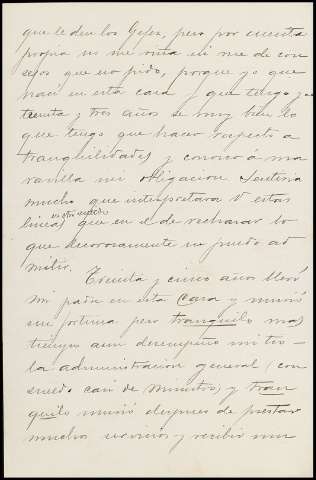 que le den los Gefes, pero por cuenta
propia no me riña ni me de con
sejos que no pido, porque yo que
nací en esta casa y que tengo ya
treinta y tres años se muy bien lo
que tengo que hacer respecto a
tranquilidades y conozco á ma
ravilla mi obligacion. Sentiria
mucho que interpretara V estas
lineas en otro sentido que en el de rechazar lo
que decorosamente no puedo ad
mitir.
Treinta y cinco años llevó
mi padre en esta Casa y murió
sin fortuna pero tranquilo mas
tiempo aun desempeñó mi tio
la administracion general (con
sueldo casi de Ministro) y tran
quilo murió despues de prestar
muchos servicios y recibir mu